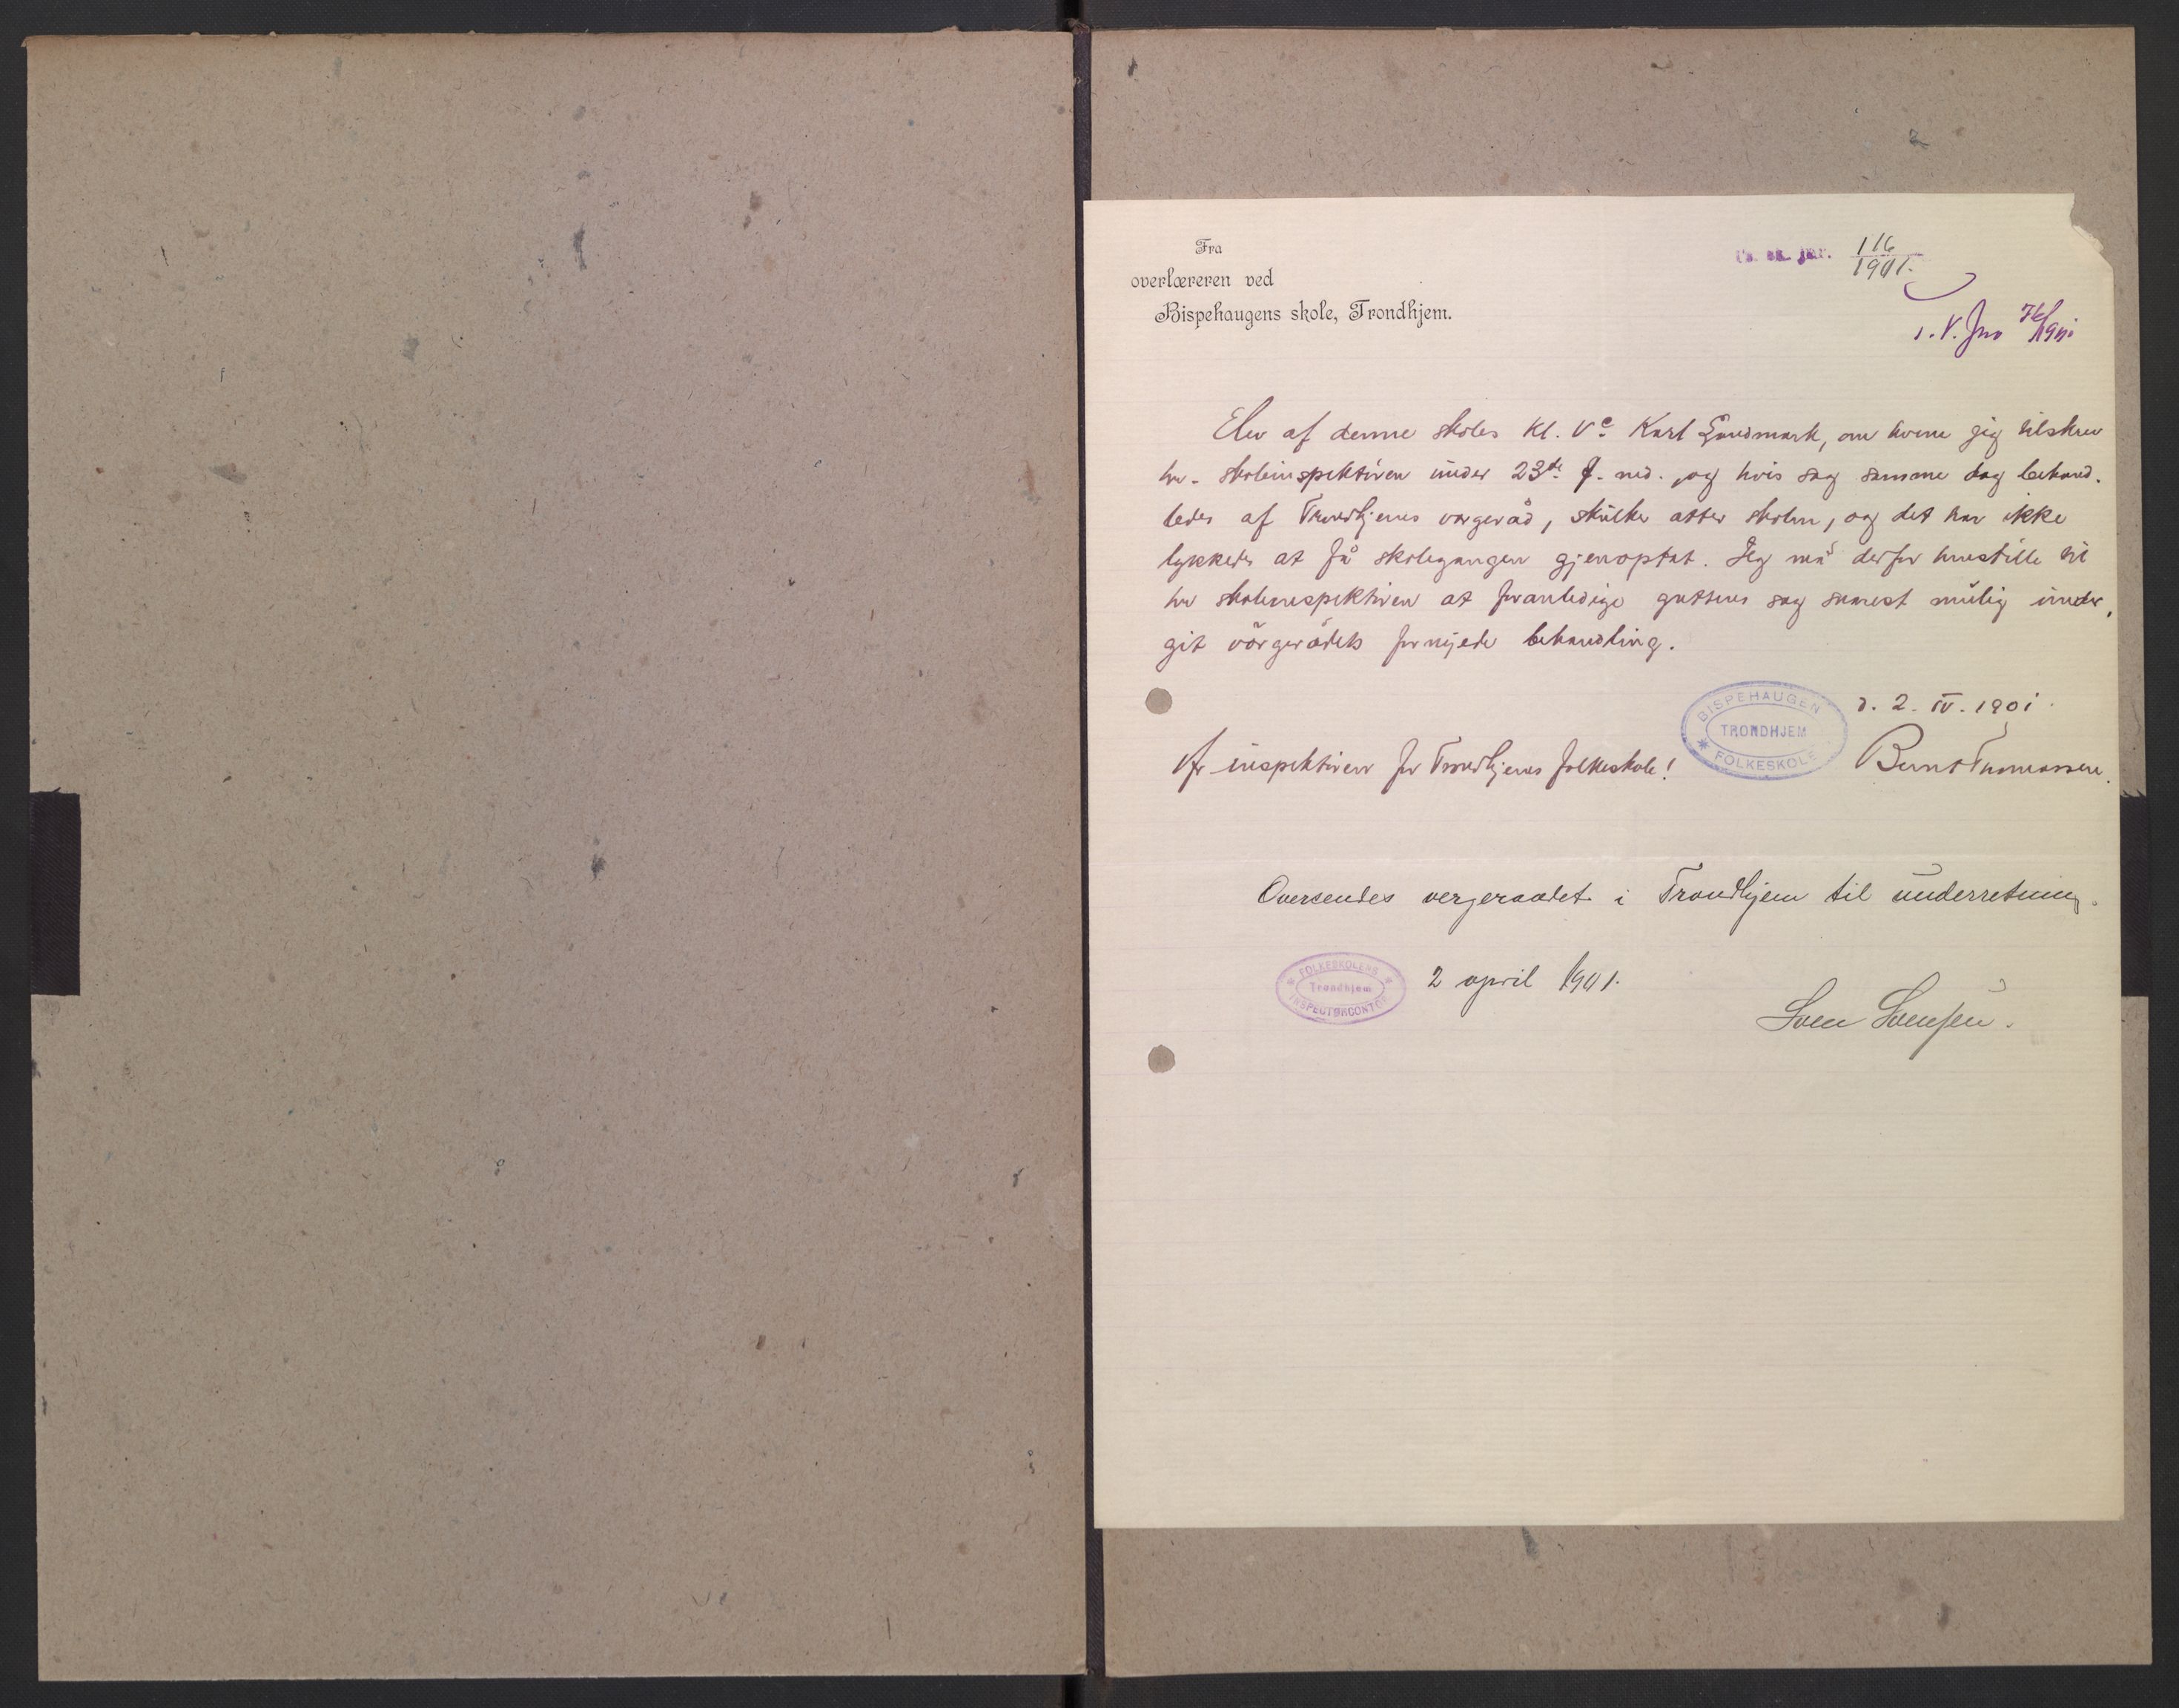 Fra
overlæreren ved
Bispehaugens skole, Trondhjem.
116
1901.
V. Jno 76/1901
Elev af denne skoles kl. Vc. Karl Sandmark, om hvem jeg tilskrev
hr. skoleinspektören under 23de f. md. og hvis sag samme dag behand-
ledes af Trondhjems vergeråd, skulker atter skolen, og det har ikke
lykkedes at få skolegangen gjenoptat. Jeg må derfor henstille til
hr skoleinspektören at foranledige guttens sag snarest mulig under-
git vergerådets fornyede behandling.
BISPEHAUGEN
TRONDHJEM
FOLKESKOLE
d. 2. IV. 1901.
Hr inspektören for Trondhjems folkeskole!
Bernt Thomassen.
Oversendes vergeraadet i Trondhjem til underretning.
FOLKESKOLENS
Trondhjem
INSPECTØRCONTOR
2 april 1901.
Sven Svensen.